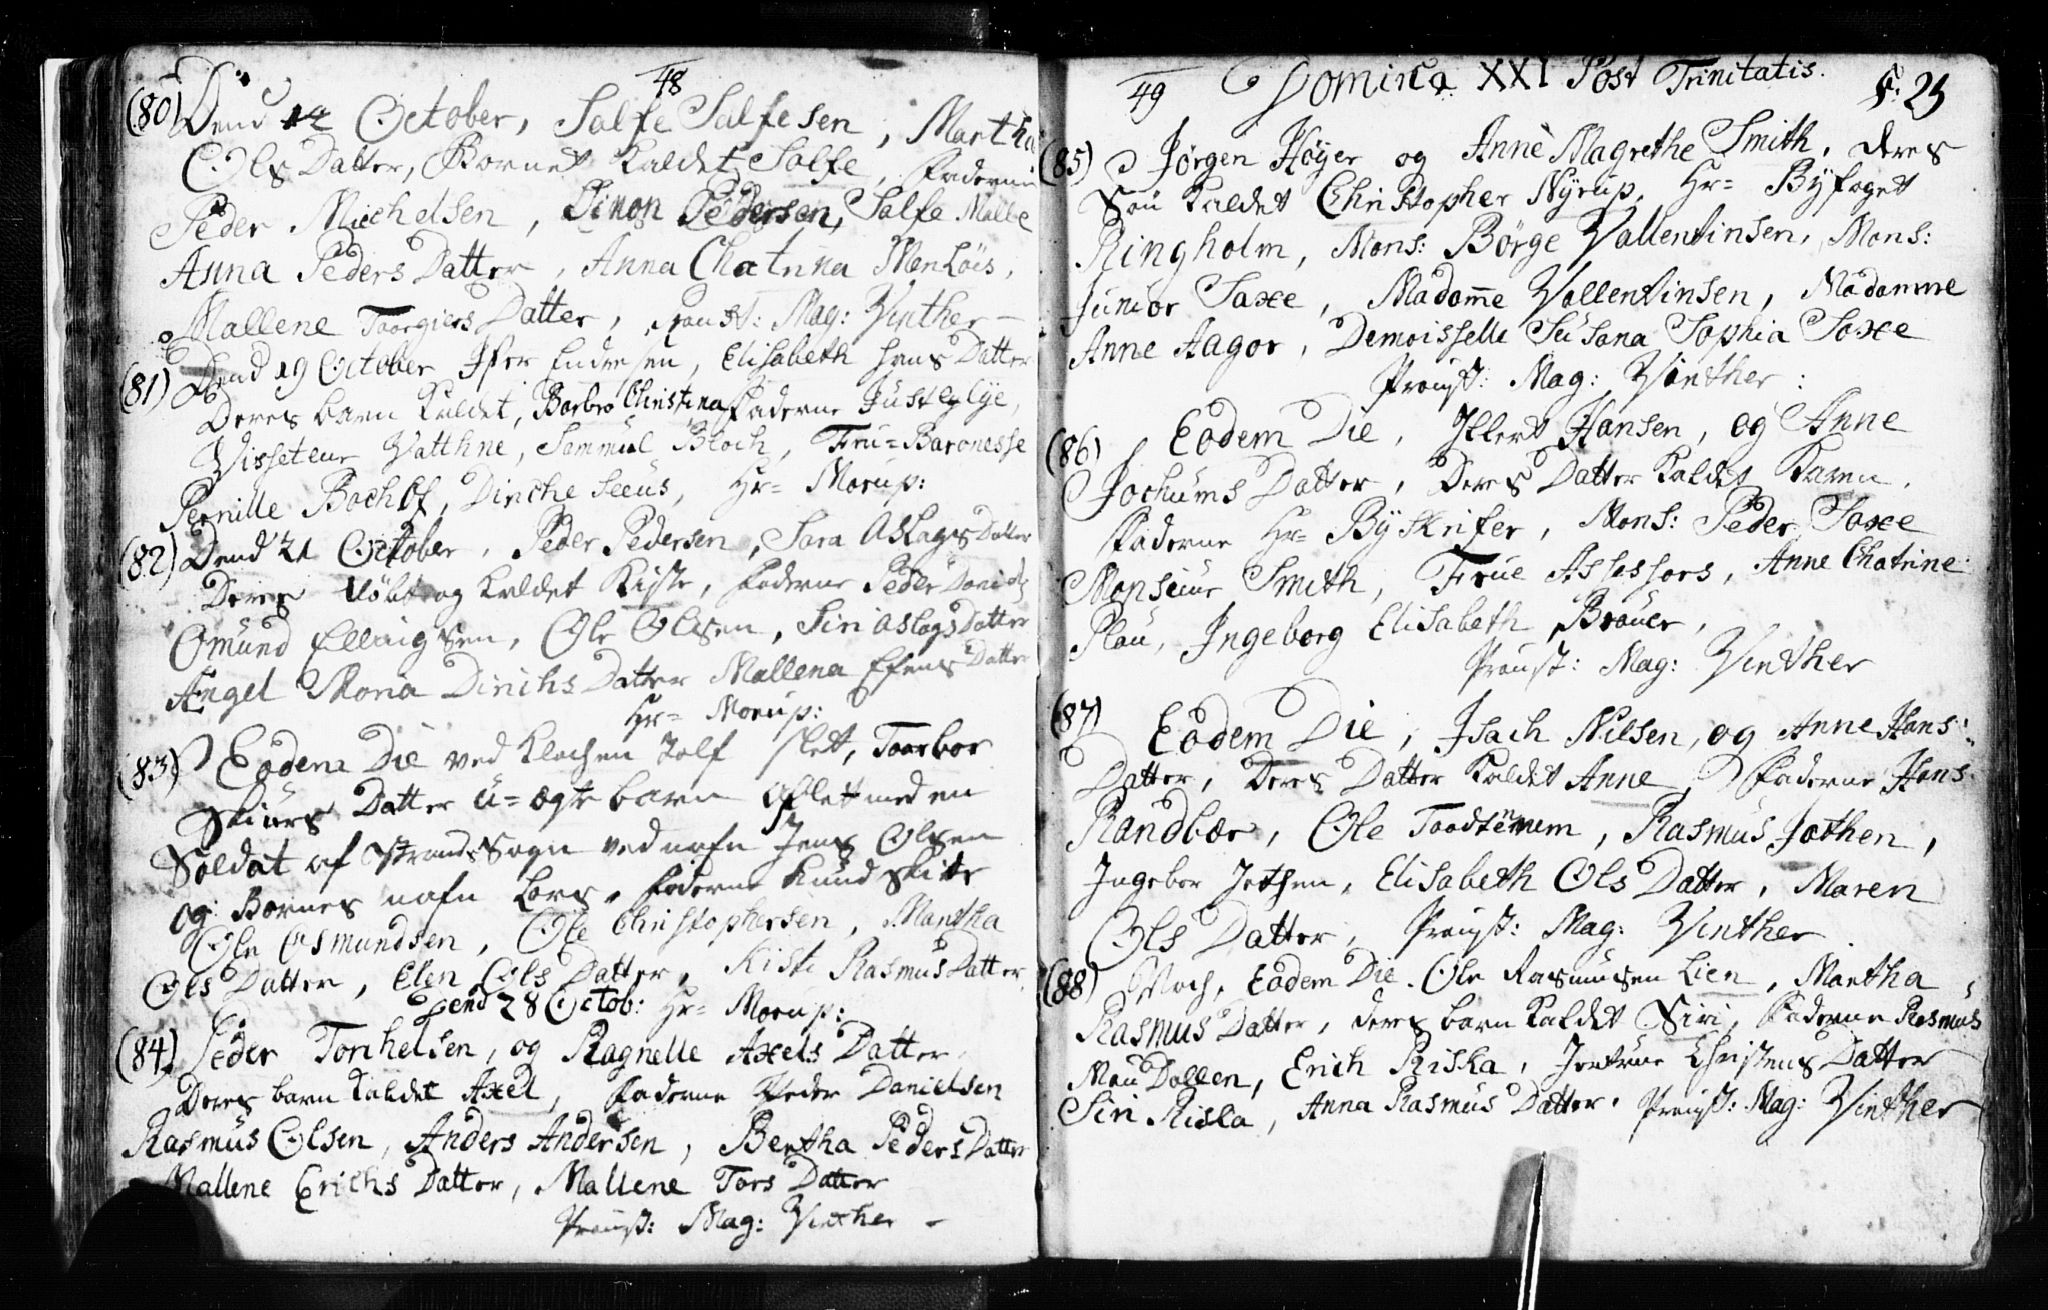 48
(80) Dend 14 October, Salfe Salfesen, Martha
Ols Datter, Barnet kaldet Salfe, Faderne
Peder Michelsen, Simon Pedersen, Salfe Malle
Anna Peders Datter, Anna Chatrina MonLöis,
Mallene Taargiers Datter, Proust: Mag: Vinther
(81) Dend 19 October Ifer Endresen, Elisabeth Hans Datter
Deres barn kaldet, Barbro Christina Faderne Just Lyse,
Visseteur Vatthne, Sammul Bloch, Fru= Baronesse
Pernille Bocholf, Dinche Seeus, Hr= Morup:
(82) Dend 21 October, Peder Pedersen, Sara Aslags Datter
Deres döbt og kaldet Kiste, Faderne Peder Daniels
Omund Ellingsen, Ole Olsen, Siri Aslags Datter
Angel Maria Dirichs Datter Mallena Efens Datter
Hr= Morup:
(83) Eodem Die ved Klochen Tolf slett, Taarbor
Skiürs Datter ü=ægte barn aflett med en
Soldat af Strands Sogn ved nafn Jens Olsen
og Barnes nafn Lars, Faderne Knud Skitte
Ole Osmundsen, Ole Christophersen, Martha
Ols Datter, Elen Ols Datter, Kisti Rasmus Datter,
Dend 28 Octob: Hr= Morup:
(84) Peder Torchelsen, og Ragnelle Axels Datter,
Deres barn kaldet Axel, Faderne Peder Danielsen
Rasmus Olsen, Anders Andersen, Bertha Peders Datter
Mallene Erichs Datter, Mallene Tors Datter
Proust: Mag: Vinther
49 Dominica XXI Post Trinitatis. F. 25
(85) Jørgen Høyer og Anne Magrethe Smith, deres
Søn kaldet Christopher Nyrup, Hr= Byfoget
Ringholm, Mons: Börge Vallentinsen, Mons:
Junior Saxe, Madame Vallentinsen, Madamme
Anne Aagor, Demoisselle Susana Sophia Saxe
Proust: Mag: Vinther:
(86) Eodem Die, Illert Hansen, og Anne
Jochums Datter, Deres Datter kaldet Karen,
Faderne Hr= Byskrifer, Mons: Peder Saxe
Monsieur Smith, Frue Assessors, Anne Chatrine
Plau, Ingeborg Elisabeth Braüer,
Proust: Mag: Vinther
(87) Eodem Die, Isach Nilsen, og Anne Hans
Datter, Deres Datter kaldet Anne, Faderne Hans
Randbær, Ole Taadtemem, Rasmus Jothen,
Ingebor Jothen, Elisabeth Ols Datter, Maren
Ols Datter, Proust: Mag: Vinther
(88) Noch, Eodem Die. Ole Rasmusen Lien, Martha
Rasmus Datter, deres barn kaldet Siri, Faderne Rasmus
Mau Dallen, Erich Riska, Jertrue Christens Datter
Siri Riska, Anna Rasmus Datter. Proust: Mag: Vinther